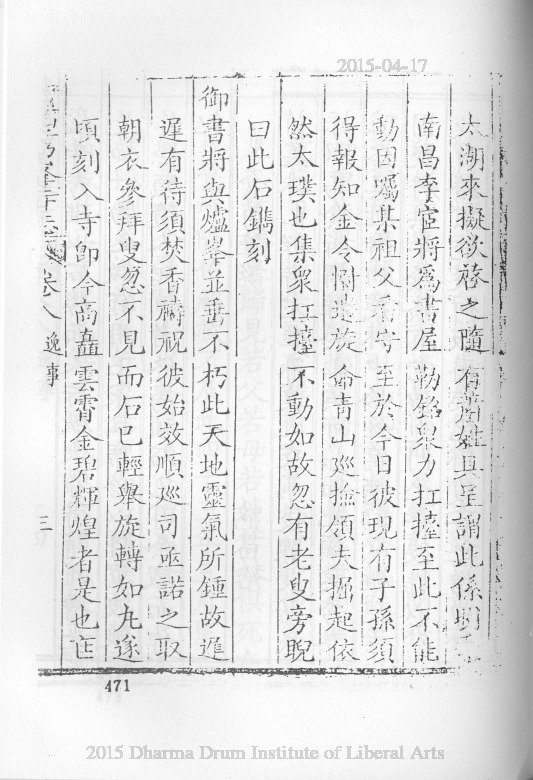 2015-04-17
太湖來擬欲啓之隨有蕭姓具呈謂此係明
南昌李宦將爲書屋勒銘衆力扛擡至此不能
動因囑某祖父看守至於今日彼現有子孫須
得報知金令惻遣旋命青山巡撿領夫掘起依
然太璞也集衆扛擡不動如故忽有老叟旁睨
曰此石鐫刻
御書將與爐峯並垂不朽此天地靈氣所鍾故遲
遲有待須焚香禱祝彼始效順巡司亟諾之取
朝衣參拜叟忽不見而石已輕舉旋轉如丸遂
頃刻入寺卽今高矗雲霄金碧輝煌者是也
卷八 逸事 三
471
2015 Dharma Drum Institute of Liberal Arts